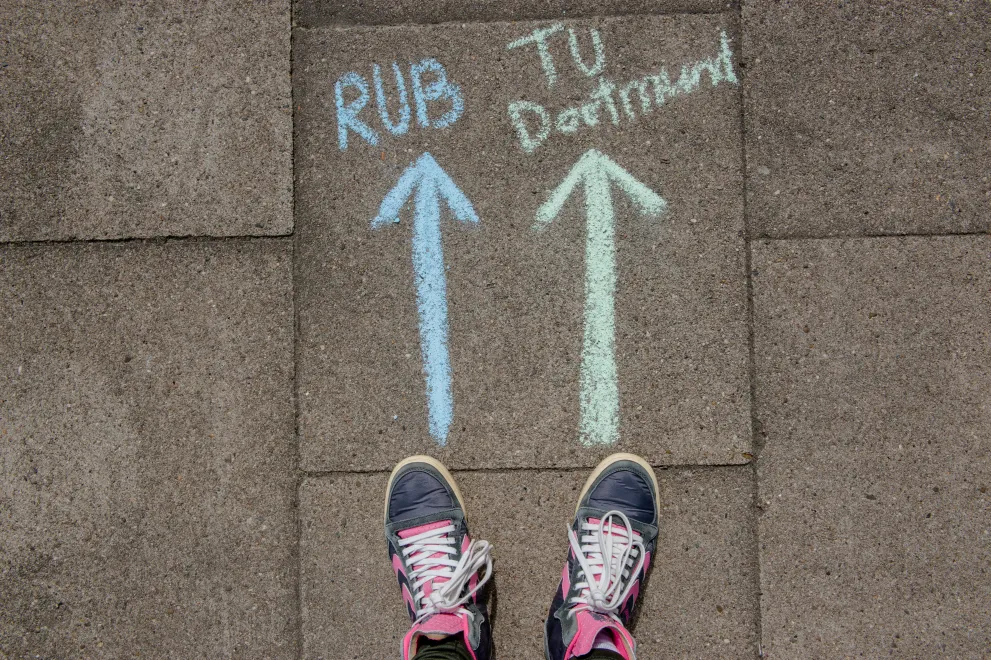 RUB
TU
Dortmund